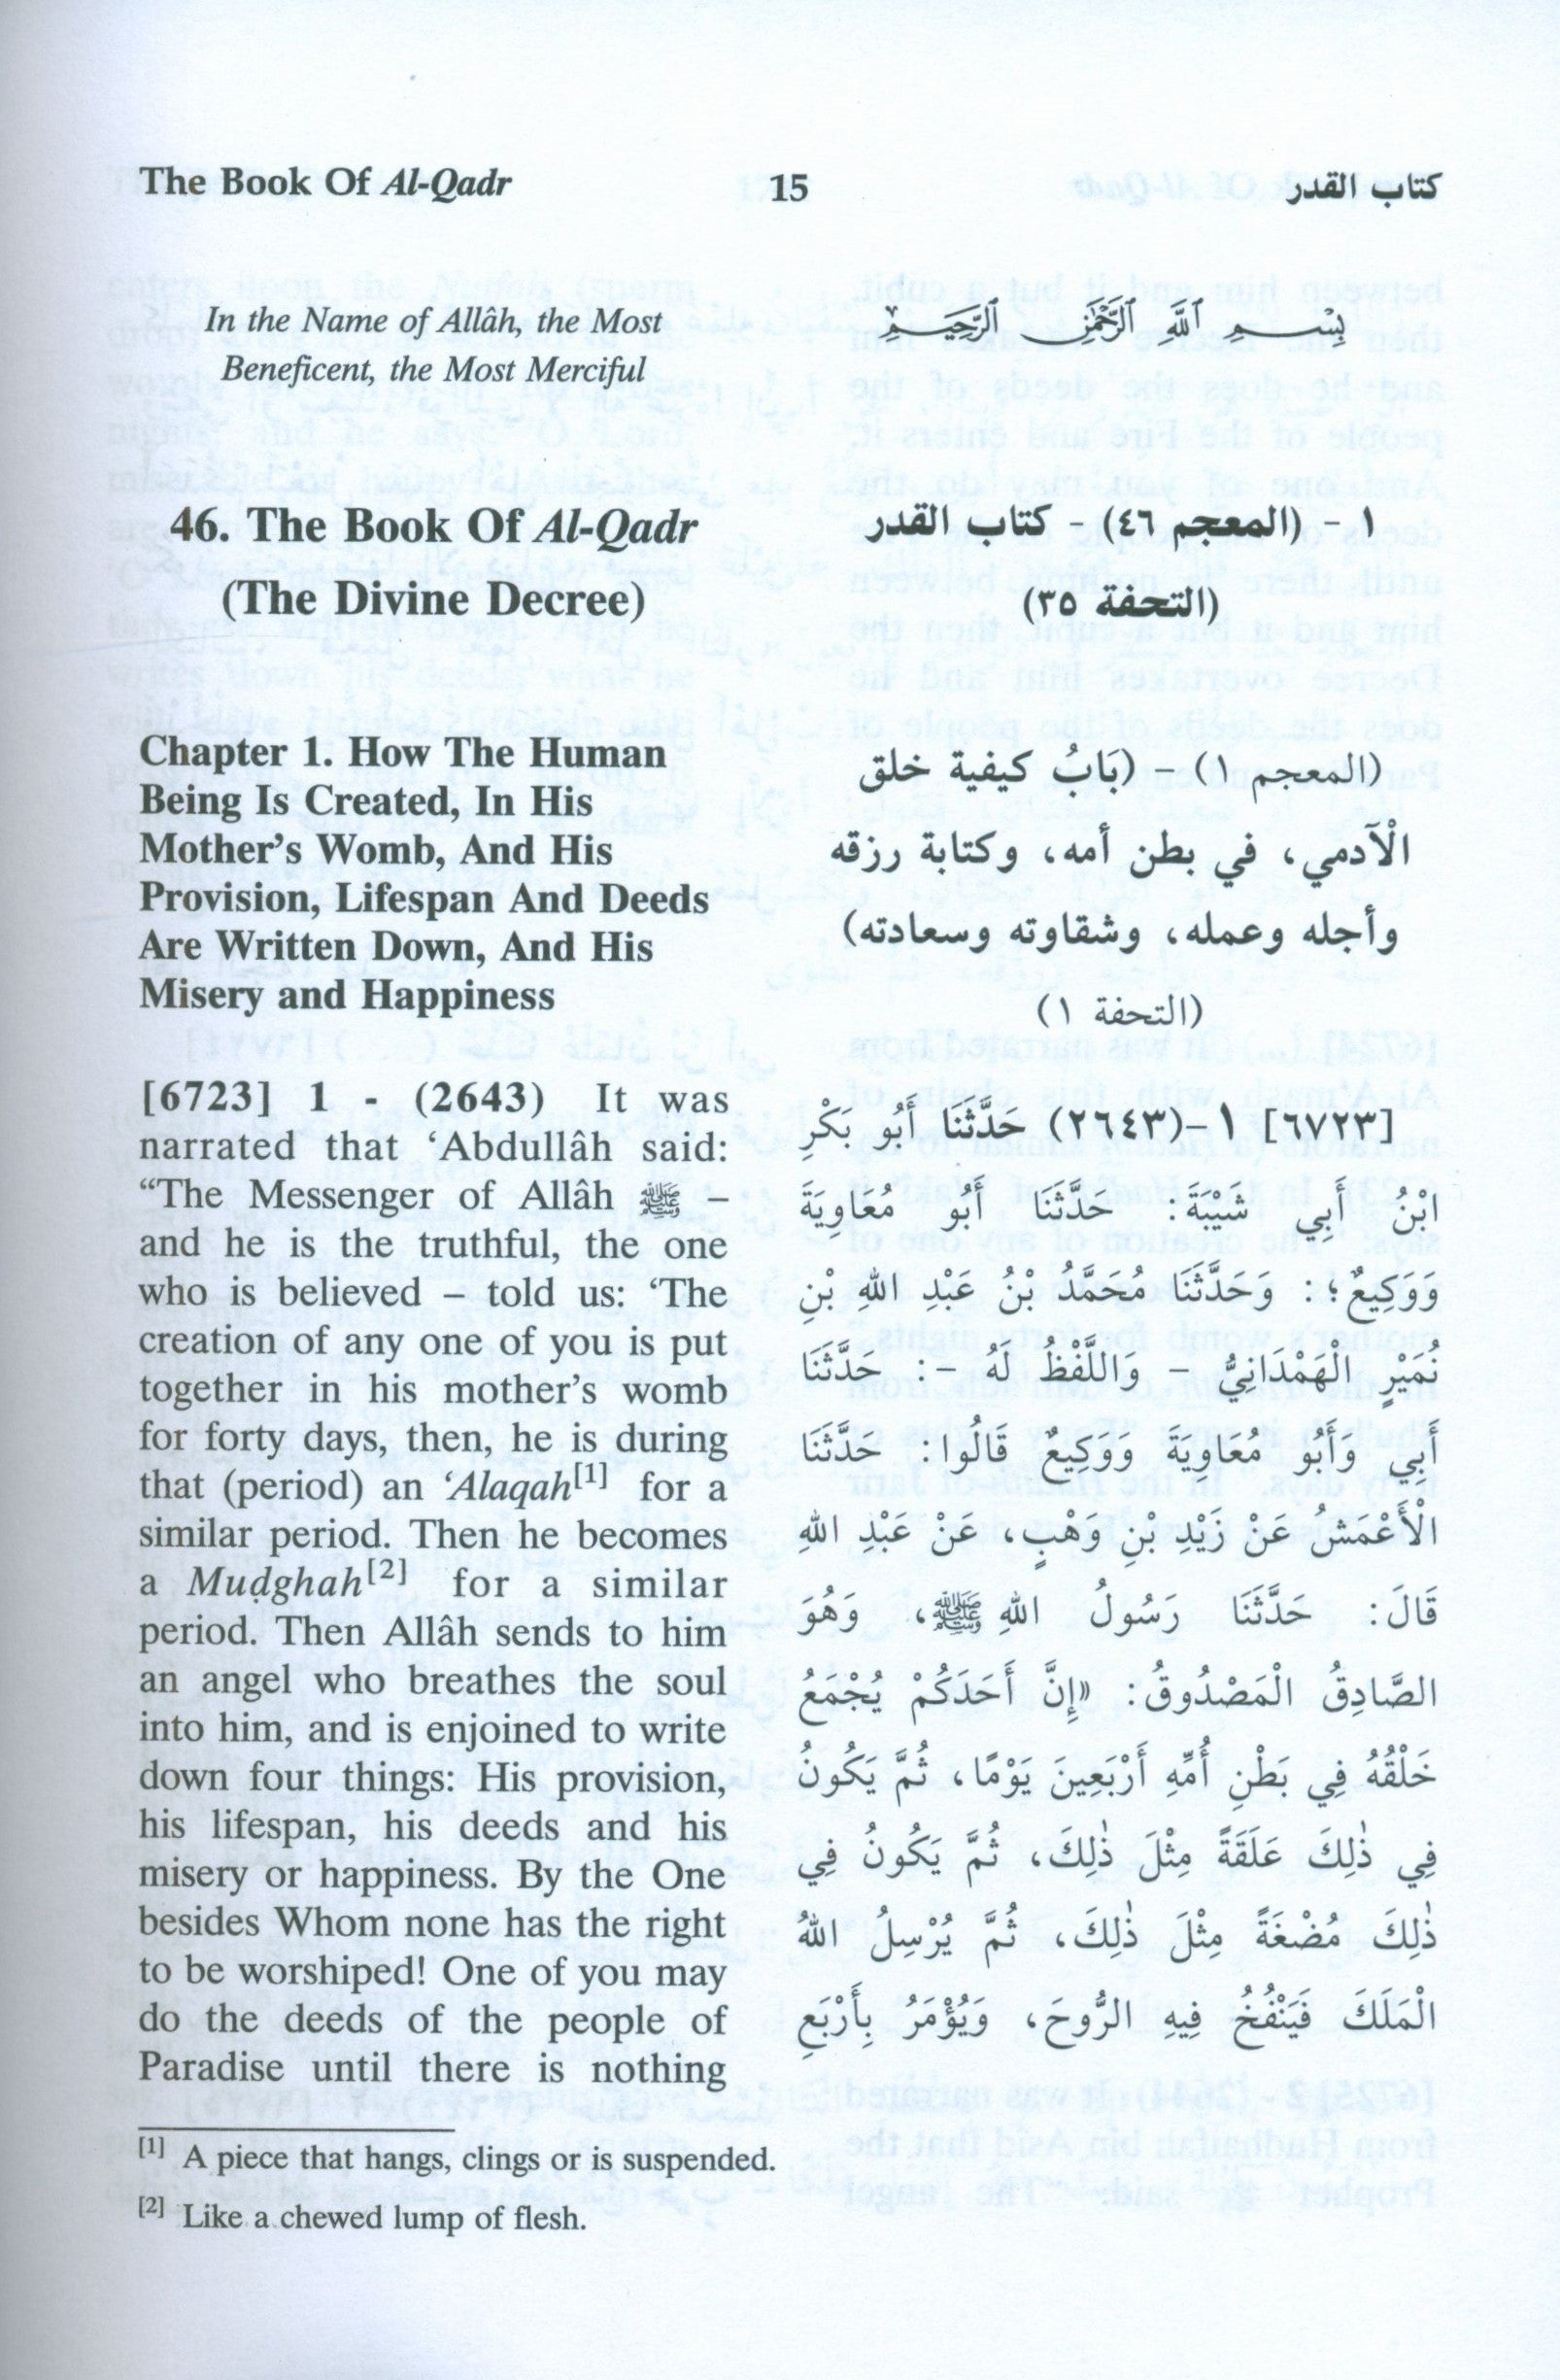 The Book Of Al-Qadr 15 كتاب القدر
In the Name of Allâh, the Most
Beneficent, the Most Merciful
46. The Book Of Al-Qadr
(The Divine Decree)
Chapter 1. How The Human
Being Is Created, In His
Mother’s Womb, And His
Provision, Lifespan And Deeds
Are Written Down, And His
Misery and Happiness
[6723] 1 - (2643) It was
narrated that ‘Abdullâh said:
“The Messenger of Allâh ﷺ –
and he is the truthful, the one
who is believed – told us: ‘The
creation of any one of you is put
together in his mother’s womb
for forty days, then, he is during
that (period) an ‘Alaqah[1] for a
similar period. Then he becomes
a Muḍghah[2] for a similar
period. Then Allâh sends to him
an angel who breathes the soul
into him, and is enjoined to write
down four things: His provision,
his lifespan, his deeds and his
misery or happiness. By the One
besides Whom none has the right
to be worshiped! One of you may
do the deeds of the people of
Paradise until there is nothing
بِسْمِ ٱللَّهِ ٱلرَّحْمَٰنِ ٱلرَّحِيمِ
١ - (المعجم ٤٦) - كتاب القدر
(التحفة ٣٥)
(المعجم ١) - (بَابُ كيفية خلق
الْآدمي، في بطن أمه، وكتابة رزقه
وأجله وعمله، وشقاوته وسعادته)
(التحفة ١)
[٦٧٢٣] ١-(٢٦٤٣) حَدَّثَنَا أَبُو بَكْرِ
ابْنُ أَبِي شَيْبَةَ: حَدَّثَنَا أَبُو مُعَاوِيَةَ
وَوَكِيعٌ؛ : وَحَدَّثَنَا مُحَمَّدُ بْنُ عَبْدِ اللهِ بْنِ
نُمَيْرٍ الْهَمْدَانِيُّ - وَاللَّفْظُ لَهُ -: حَدَّثَنَا
أَبِي وَأَبُو مُعَاوِيَةَ وَوَكِيعٌ قَالُوا: حَدَّثَنَا
الْأَعْمَشُ عَنْ زَيْدِ بْنِ وَهْبٍ، عَنْ عَبْدِ اللهِ
قَالَ: حَدَّثَنَا رَسُولُ اللهِ ﷺ، وَهُوَ
الصَّادِقُ الْمَصْدُوقُ: «إِنَّ أَحَدَكُمْ يُجْمَعُ
خَلْقُهُ فِي بَطْنِ أُمِّهِ أَرْبَعِينَ يَوْمًا، ثُمَّ يَكُونُ
فِي ذٰلِكَ عَلَقَةً مِثْلَ ذٰلِكَ، ثُمَّ يَكُونُ فِي
ذٰلِكَ مُضْغَةً مِثْلَ ذٰلِكَ، ثُمَّ يُرْسِلُ اللهُ
الْمَلَكَ فَيَنْفُخُ فِيهِ الرُّوحَ، وَيُؤْمَرُ بِأَرْبَعِ
[1] A piece that hangs, clings or is suspended.
[2] Like a chewed lump of flesh.